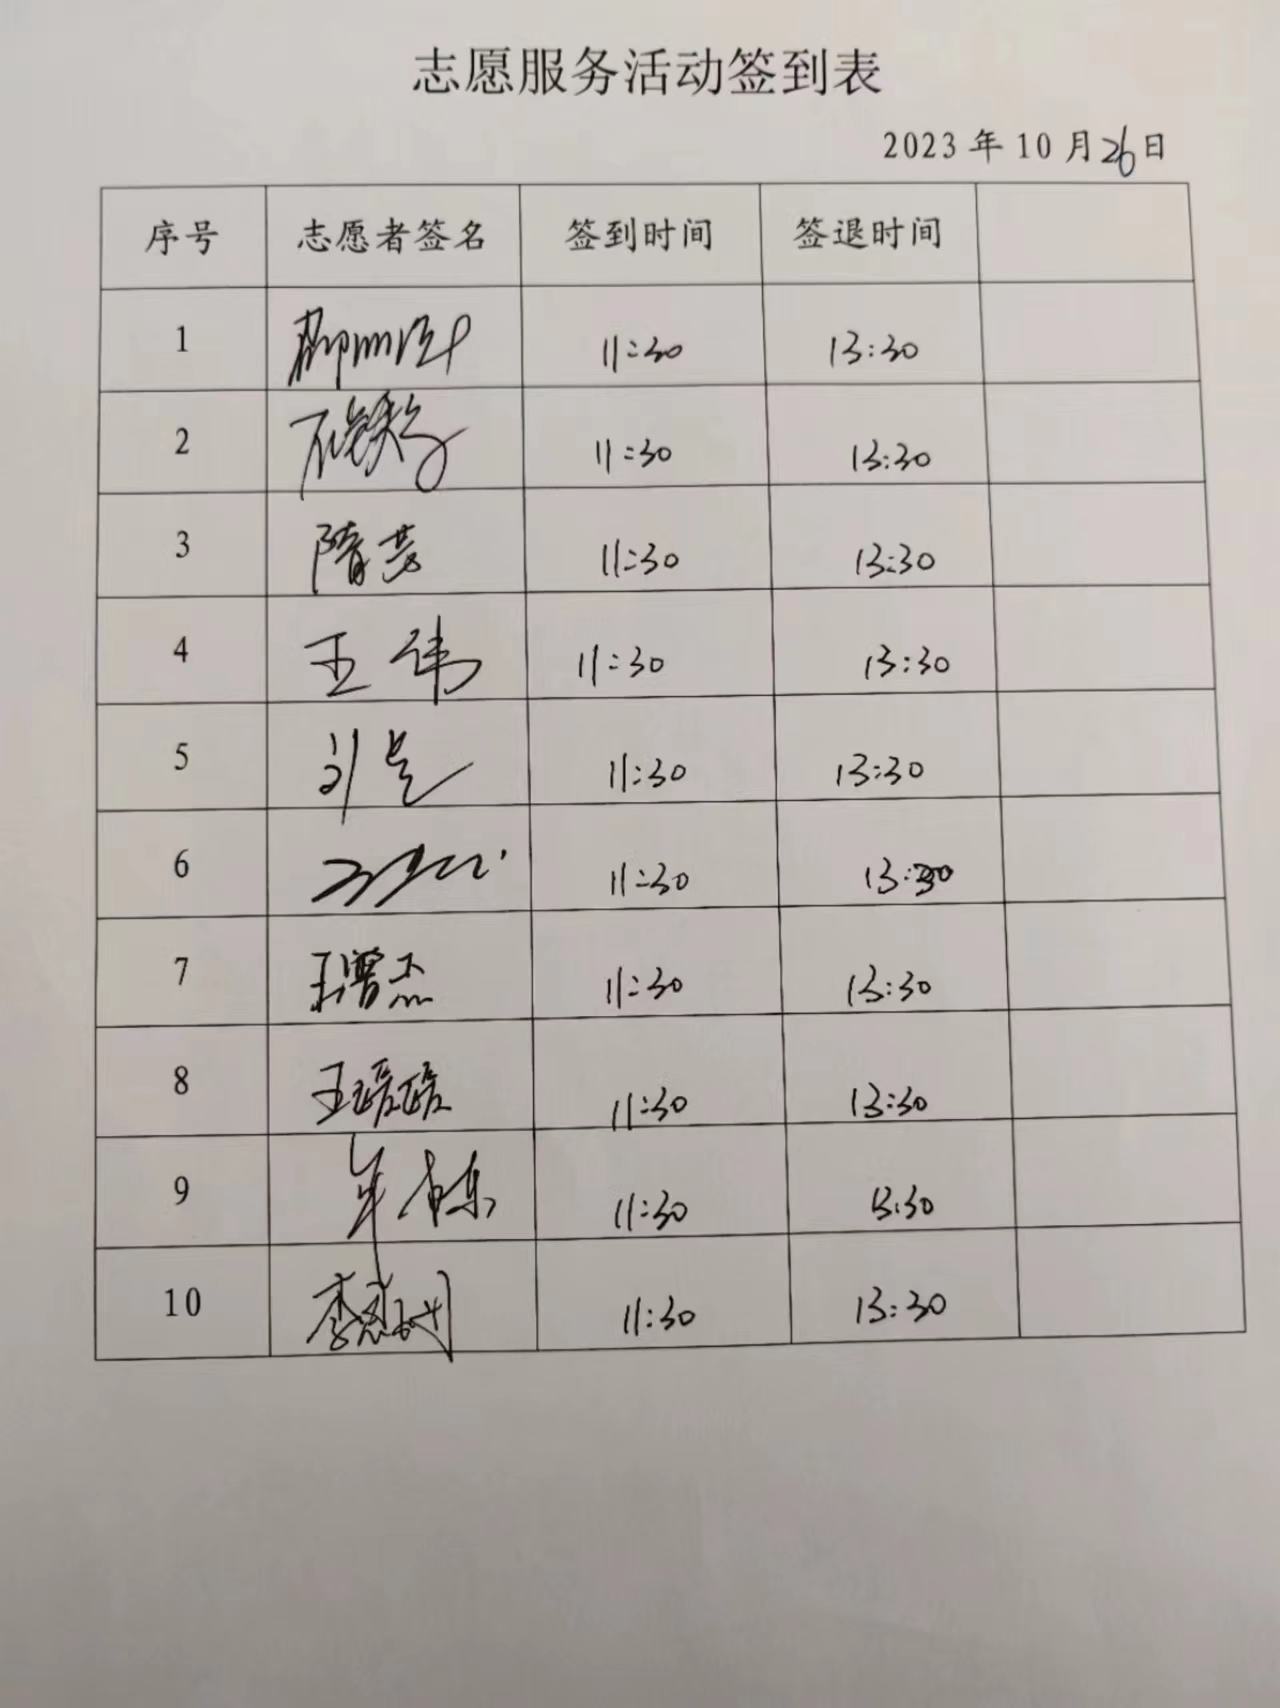 志愿服务活动签到表
2023年10月26日
序号 志愿者签名 签到时间 签退时间
1 11:30 13:30
2 11:30 13:30
3 隋芸 11:30 13:30
4 王伟 11:30 13:30
5 11:30 13:30
6 11:30 13:30
7 王增杰 11:30 13:30
8 王瑶瑶 11:30 13:30
9 11:30 13:30
10 李 11:30 13:30